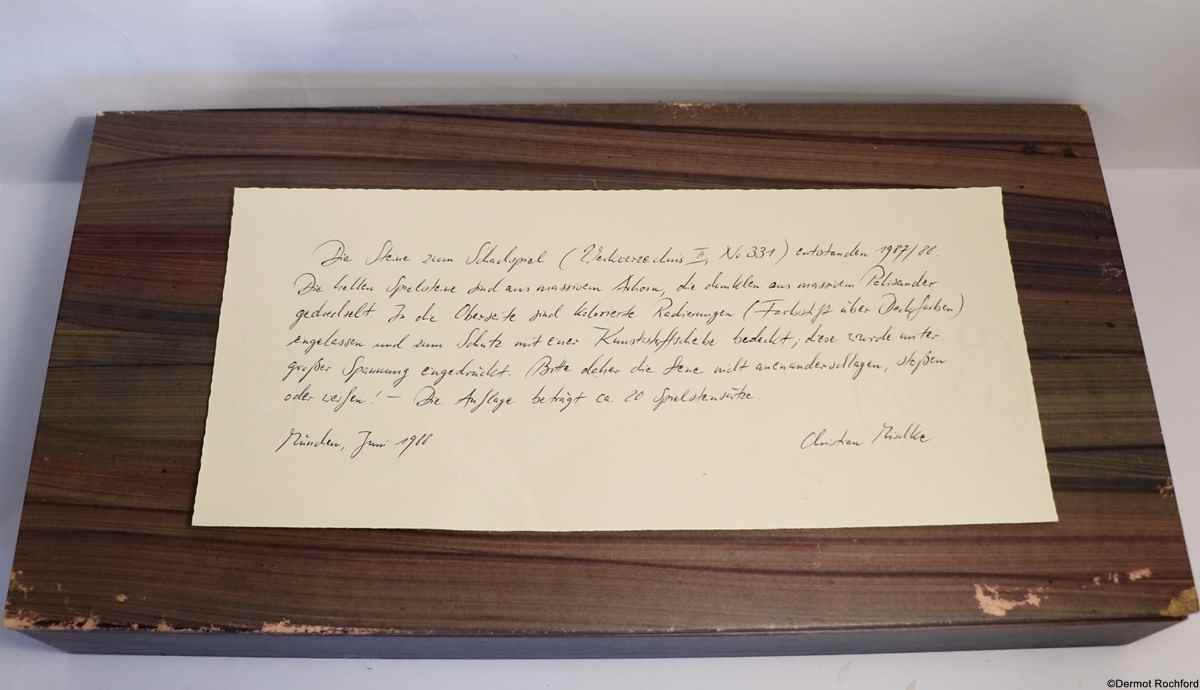 Die Steine zum Schachspiel (Werkverzeichnis II, No 331) entstanden 1987/88.
Die hellen Spielsteine sind aus massivem Ahorn, die dunklen aus massivem Palisander
gedrechselt. In die Oberseite sind kolorierte Radierungen (Farbstift über Deckfarben)
eingelassen und zum Schutz mit einer Kunststoffscheibe bedeckt; diese wurde unter
großer Spannung eingedrückt. Bitte daher die Steine nicht aneinanderschlagen, stoßen
oder werfen! – Die Auflage beträgt ca. 20 Spielsteinsätze.
München, Juni 1988
Christian Mischke
©Dermot Rochford